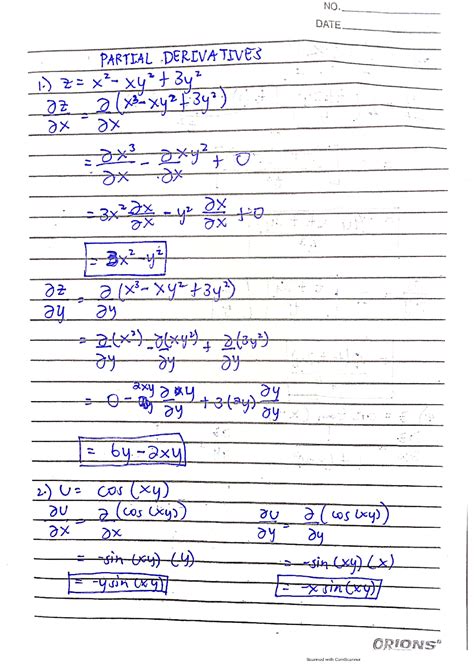 NO.
DATE
PARTIAL DERIVATIVES
1.) z = x² - xy² + 3y²
∂z/∂x = ∂(x³ - xy² + 3y²)/∂x
= ∂x³/∂x - ∂xy²/∂x + 0
= 3x² ∂x/∂x - y² ∂x/∂x + 0
= 3x² - y²
∂z/∂y = ∂(x³ - xy² + 3y²)/∂y
= ∂(x²)/∂y - ∂(xy²)/∂y + ∂(3y²)/∂y
= 0 - 2xy ∂y/∂y + 3(2y) ∂y/∂y
= 6y - 2xy
2.) U = cos (xy)
∂U/∂x = ∂(cos(xy))/∂x
∂U/∂y = ∂(cos(xy))/∂y
= -sin (xy) (y)
= -sin (xy) (x)
= -y sin (xy)
= -x sin (xy)
ORIONS
Scanned with CamScanner